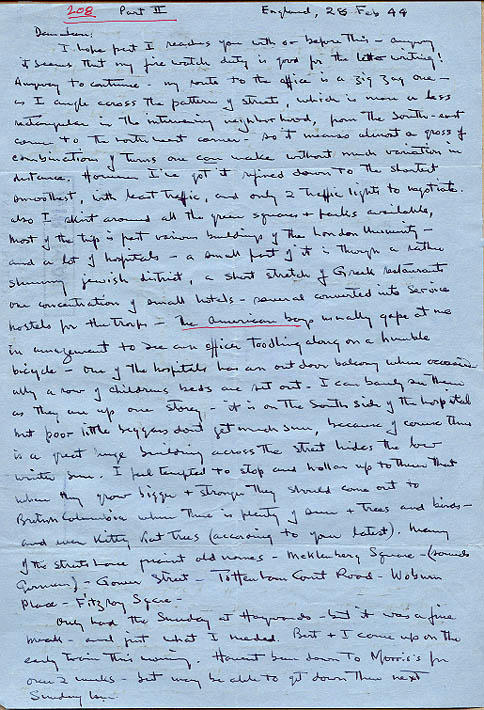 208 Part II England, 28 Feb 44
Dear Jean:
I hope part I reaches you with or before this – anyway
it seems that my fire watch duty is good for the letter writing!
Anyway to continue – my route to the office is a zig zag one –
as I angle across the pattern of streets, which is more or less
rectangular in the intervening neighborhood, from the South-east
corner to the north west corner – so it means almost a gross of
combinations of turns one can make without much variation in
distance. However I've got it refined down to the shortest
smoothest, with least traffic, and only 2 traffic lights to negotiate.
also I skirt around all the green squares + parks available,
most of the trip is past various buildings of the London University –
and a lot of hospitals – a small part of it is through a rather
slummy jewish district, a short stretch of Greek restaurants
one concentration of small hotels – several converted into Service
hostels for the troops – The American boys usually gape at me
in amazement to see an officer toodling along on a humble
bicycle – one of the hospitals has an outdoor balcony where occasion
ally a row of childrens beds are set out. I can barely see them
as they are up one storey – it is on the South side of the hospital
but poor little beggars dont get much sun, because of course there
is a great huge building across the street hides the low
winter sun. I feel tempted to stop and holler up to them that
when they grow bigger + stronger they should come out to
British Columbia where there is plenty of sun + trees and birds –
and even Kitty Kat trees (according to your latest). Many
of the streets have quaint old names – Mecklenberg Square – (sounds
German) – Gower Street – Tottenham Court Road – Woburn
Place – Fitzroy Square –
Only had the Sunday at Haywards – but it was a fine
break – and just what I needed. Bert + I came up on the
early train this morning. Havent been down to Morris's for
over 2 weeks – but may be able to get down there next
Sunday